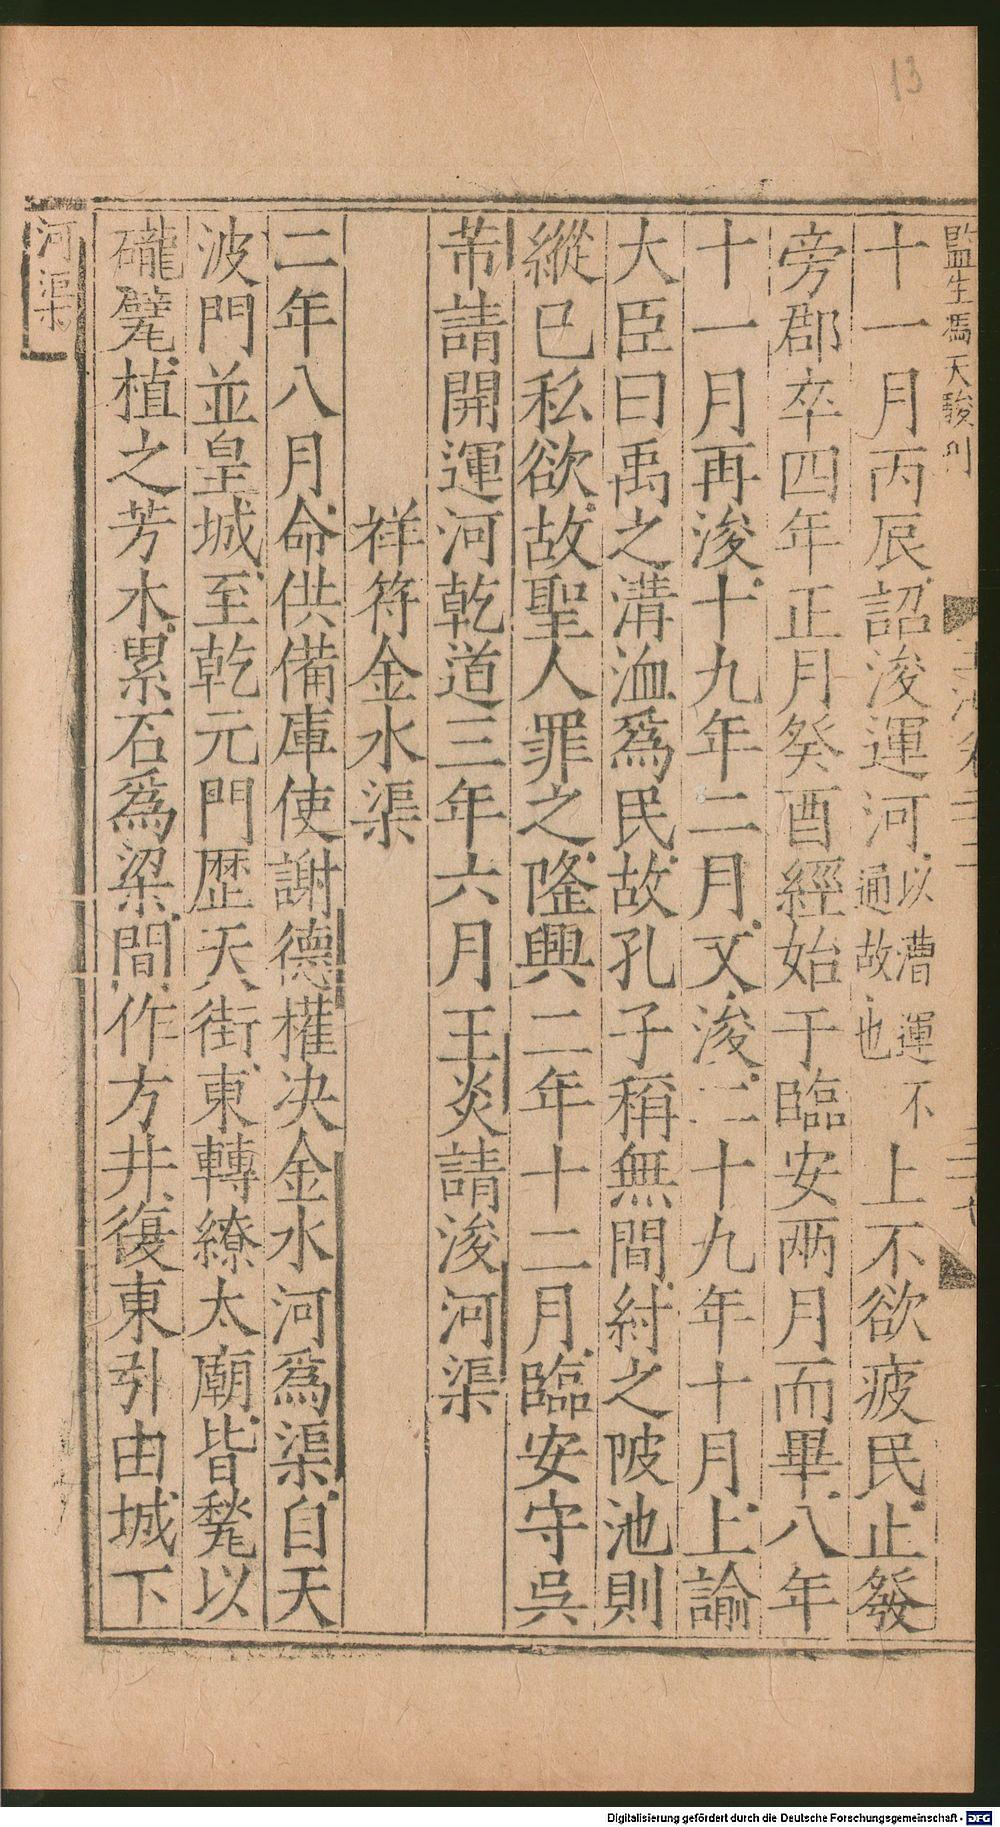 13
監生馮天駿刊
十一月丙辰詔浚運河以漕運不通故也上不欲疲民止發
旁郡卒四年正月癸酉經始于臨安兩月而畢八年
十一月再浚十九年二月又浚二十九年十月上諭
大臣曰禹之溝洫爲民故孔子稱無間紂之陂池則
縱已私欲故聖人罪之隆興二年十二月臨安守吳
芾請開運河乾道三年六月王炎請浚河渠
祥符金水渠
二年八月命供備庫使謝德權決金水河爲渠自天
波門並皇城至乾元門歷天街東轉繚太廟皆甃以
礲甓植之芳木累石爲梁間作方井復東引由城下
河渠
Digitalisierung gefördert durch die Deutsche Forschungsgemeinschaft - DFG